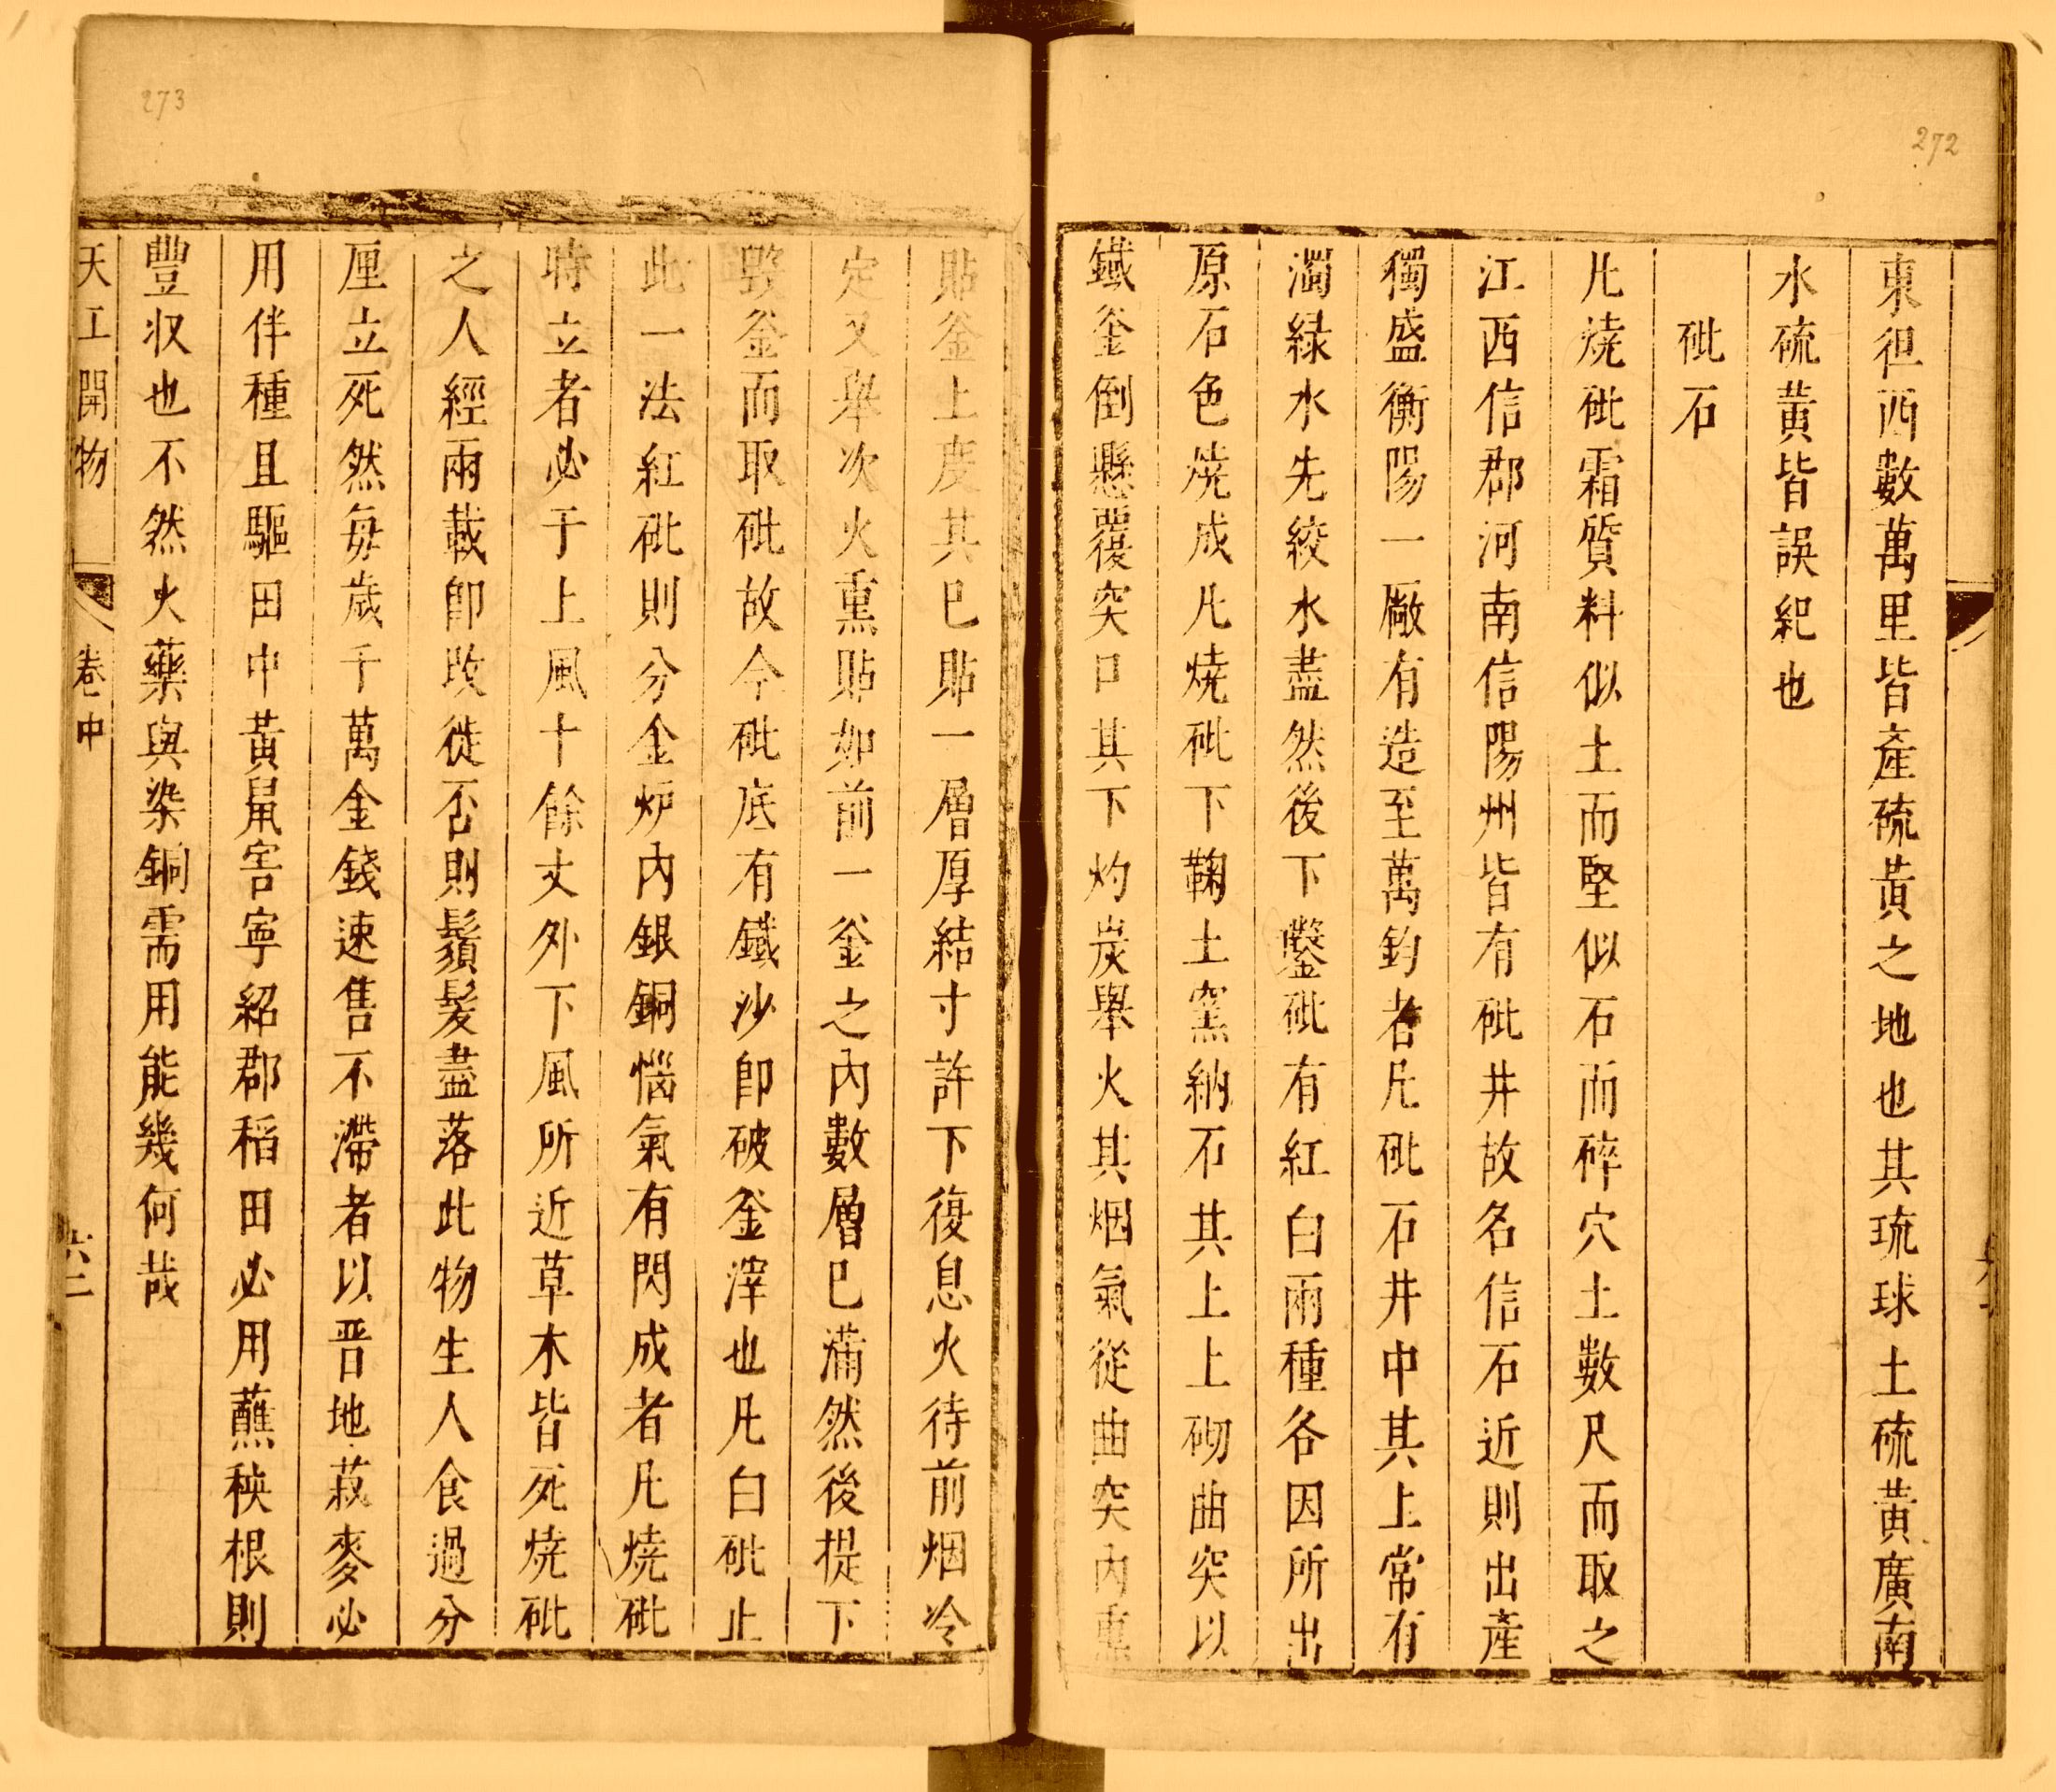 272
東徂西數萬里皆產硫黃之地也其琉球土硫黃廣南
水硫黃皆誤紀也
砒石
凡燒砒霜質料似土而堅似石而碎穴土數尺而取之
江西信郡河南信陽州皆有砒井故名信石近則出產
獨盛衡陽一廠有造至萬鈞者凡砒石井中其上常有
濁綠水先絞水盡然後下鑿砒有紅白兩種各因所出
原石色燒成凡燒砒下鞠土窯納石其上上砌曲突以
鐵釜倒懸覆突口其下灼炭舉火其烟氣從曲突內熏
貼釜上度其已貼一層厚結寸許下復息火待前烟冷
定又舉次火熏貼如前一釜之內數層已滿然後提下
毀釜而取砒故今砒底有鐵沙即破釜滓也凡白砒止
此一法紅砒則分金炉內銀銅惱氣有閃成者凡燒砒
時立者必于上風十餘丈外下風所近草木皆死燒砒
之人經兩載即改徙否則鬚髮盡落此物生人食過分
厘立死然每歲千萬金錢速售不滯者以晋地菽麥必
用伴種且驅田中黃鼠害寧紹郡稻田必用蘸秧根則
豐収也不然火藥與染銅需用能幾何哉
天工開物 卷中 六二
273